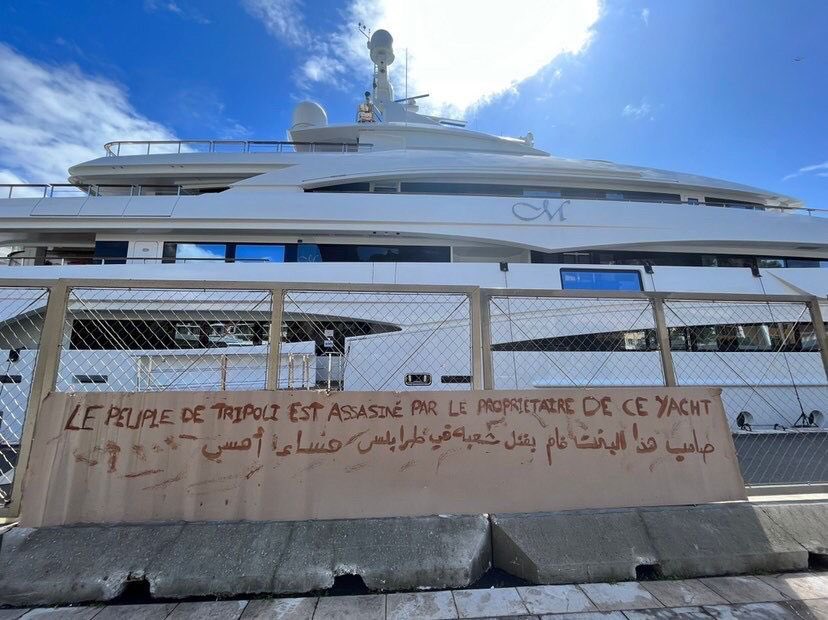 M
LE PEUPLE DE TRIPOLI EST ASSASINÉ PAR LE PROPRIETAIRE DE CE YACHT
صاحب هذا اليخت قام بقتل شعبه في طرابلس مساء أمس